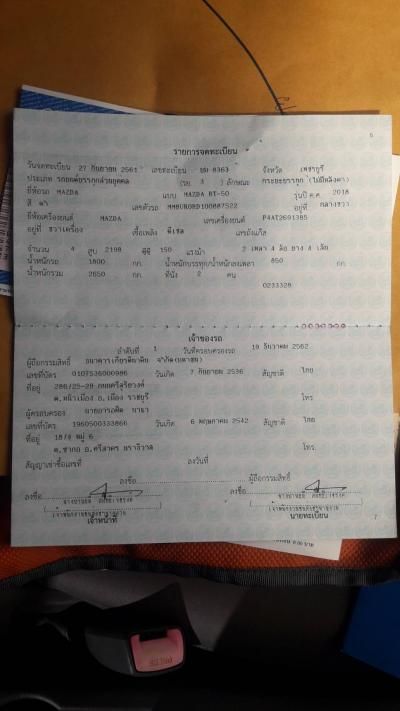 6
รายการจดทะเบียน
วันจดทะเบียน 27 กันยายน 2561 เลขทะเบียน 8363 จังหวัด เพชรบุรี
ประเภท รถยนต์บรรทุกส่วนบุคคล (รย. 3 ) ลักษณะ กระบะบรรทุก (ไม่มีหลังคา)
ยี่ห้อรถ MAZDA แบบ MAZDA BT-50 รุ่นปี ค.ศ. 2018
สี ดำ เลขตัวรถ อยู่ที่ กลางขวา
ยี่ห้อเครื่องยนต์ MAZDA เลขเครื่องยนต์ P4AT2691385
อยู่ที่ ขวาเครื่อง เชื้อเพลิง ดีเซล เลขถังแก๊ส
จำนวน 4 สูบ 2198 ซีซี 150 แรงม้า 2 เพลา 4 ล้อ ยาง 4 เส้น
น้ำหนักรถ 1800 กก. น้ำหนักบรรทุก/น้ำหนักลงเพลา 850 กก.
น้ำหนักรวม 2650 กก. ที่นั่ง 2 คน
0233328
เจ้าของรถ
ลำดับที่ 1 วันที่ครอบครองรถ 19 ธันวาคม 2562
ผู้ถือกรรมสิทธิ์ ธนาคารเกียรตินาคิน จำกัด(มหาชน)
เลขที่บัตร 0107536000986 วันเกิด 7 กันยายน 2536 สัญชาติ ไทย
ที่อยู่ 286/25-28 ถนนศรีสุริยวงศ์
ต.หน้าเมือง อ.เมือง ราชบุรี โทร.
ผู้ครอบครอง
เลขที่บัตร 1960500333866 วันเกิด 6 พฤษภาคม 2542 สัญชาติ ไทย
ที่อยู่ 18/8 หมู่ 6
อ.ศรีสาคร นราธิวาส โทร.
สัญญาเช่าซื้อเลขที่ ลงวันที่
ลงชื่อ ผู้ถือกรรมสิทธิ์
ลงชื่อ ลงชื่อ
เจ้าหน้าที่ นายทะเบียน
7